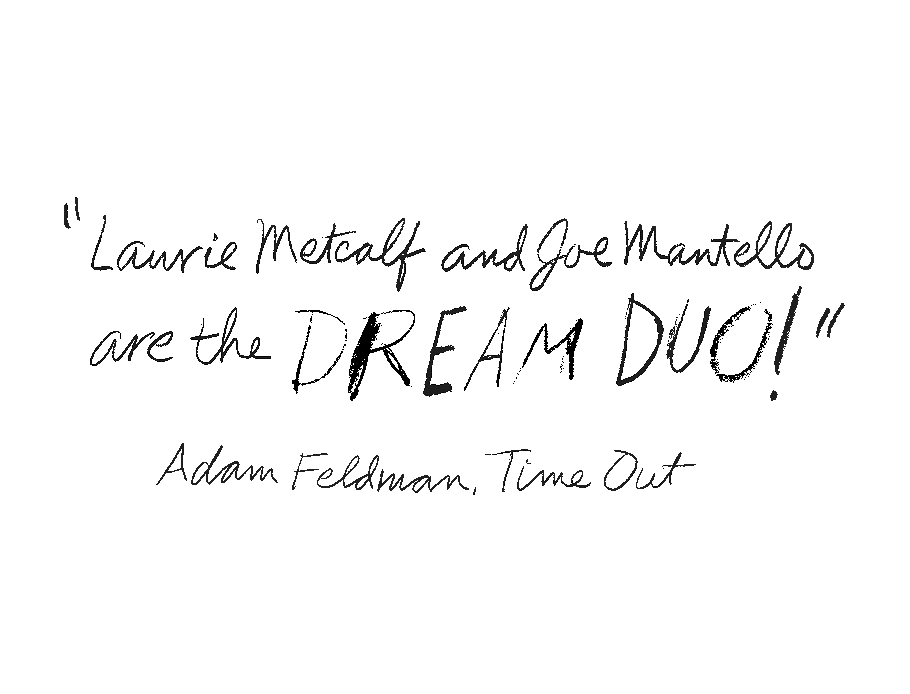 "Laurie Metcalf and Joe Mantello
are the DREAM DUO!"
Adam Feldman, Time Out